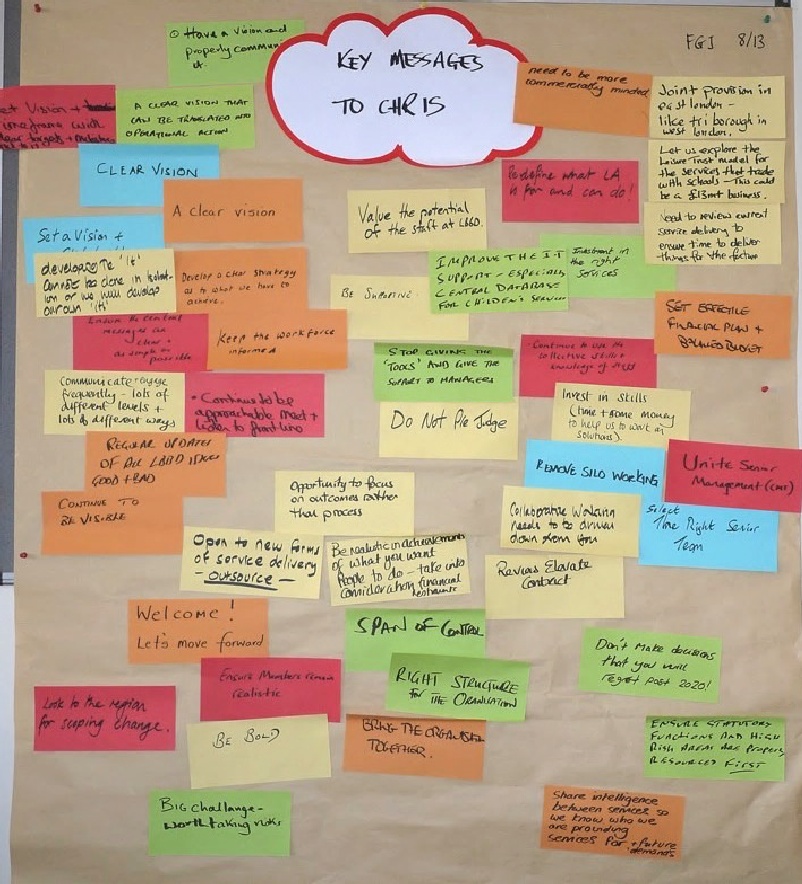 KEY MESSAGES
TO CHRIS
FG1 8/13
Have a vision and
properly commun
it.
need to be more
commercially minded
Joint provision in
east london -
like tri borough in
west london.
A CLEAR VISION THAT
CAN BE TRANSLATED INTO
OPERATIONAL ACTION
Vision +
timeframe with
targets +
CLEAR VISION
A clear vision
Value the potential
of the staff at LBBD.
Redefine what LA
is for and can do!
Let us explore the
Leisure Trust model for
the services that trade
with schools - This could
be a £13mt business.
Need to review current
service delivery to
ensure time to deliver
things for the future
Set a Vision +
develop the "it"
done in isolat-
ion or we will develop
our own "it"
Develop a clear strategy
as to what we have to
achieve.
BE SUPPORTIVE
IMPROVE THE IT
SUPPORT - ESPECIALLY
CENTRAL DATABASE
FOR CHILDREN'S SERVICES
Investment in
the right
services
SET EFFECTIVE
FINANCIAL PLAN +
BALANCED BUDGET
Ensure the
messages are
clear +
as simple as
possible
Keep the workforce
informed
STOP GIVING THE
"TOOLS" AND GIVE THE
SUPPORT TO MANAGERS
Continue to use the
collective skills +
knowledge of staff
communicate
frequently - lots of
different levels +
lots of different ways
• Continue to be
approachable meet +
listen to front line
Do Not Pre Judge
Invest in skills
(time + some money
to help us to work on
solutions).
REGULAR UPDATES
OF ALL LBBD ISSUES
GOOD + BAD
CONTINUE TO
BE VISIBLE
Opportunity to focus
on outcomes rather
than process
REMOVE SILO WORKING
Unite Senior
Management (CMT)
Collaborative Working
needs to be driven
down from
Select
The Right Senior
Team
Open to new forms
of service delivery
- OUTSOURCE -
Be realistic in
of what you want
People to do - take into
consideration financial
restraints
Review Elevate
Contract
Welcome!
Let's move forward
SPAN OF CONTROL
Don't make decisions
that you will
regret post 2020!
Ensure Members remain
realistic
RIGHT STRUCTURE
FOR THE ORGANISATION
Look to the region
for scoping change.
BE BOLD
BRING THE ORGANISATION
TOGETHER.
ENSURE STATUTORY
FUNCTIONS AND HIGH
RISK AREAS ARE PROPERLY
RESOURCED FIRST
BIG challange -
worth taking risks
Share intelligence
between services so
we know who we
are providing
services for + future
demands